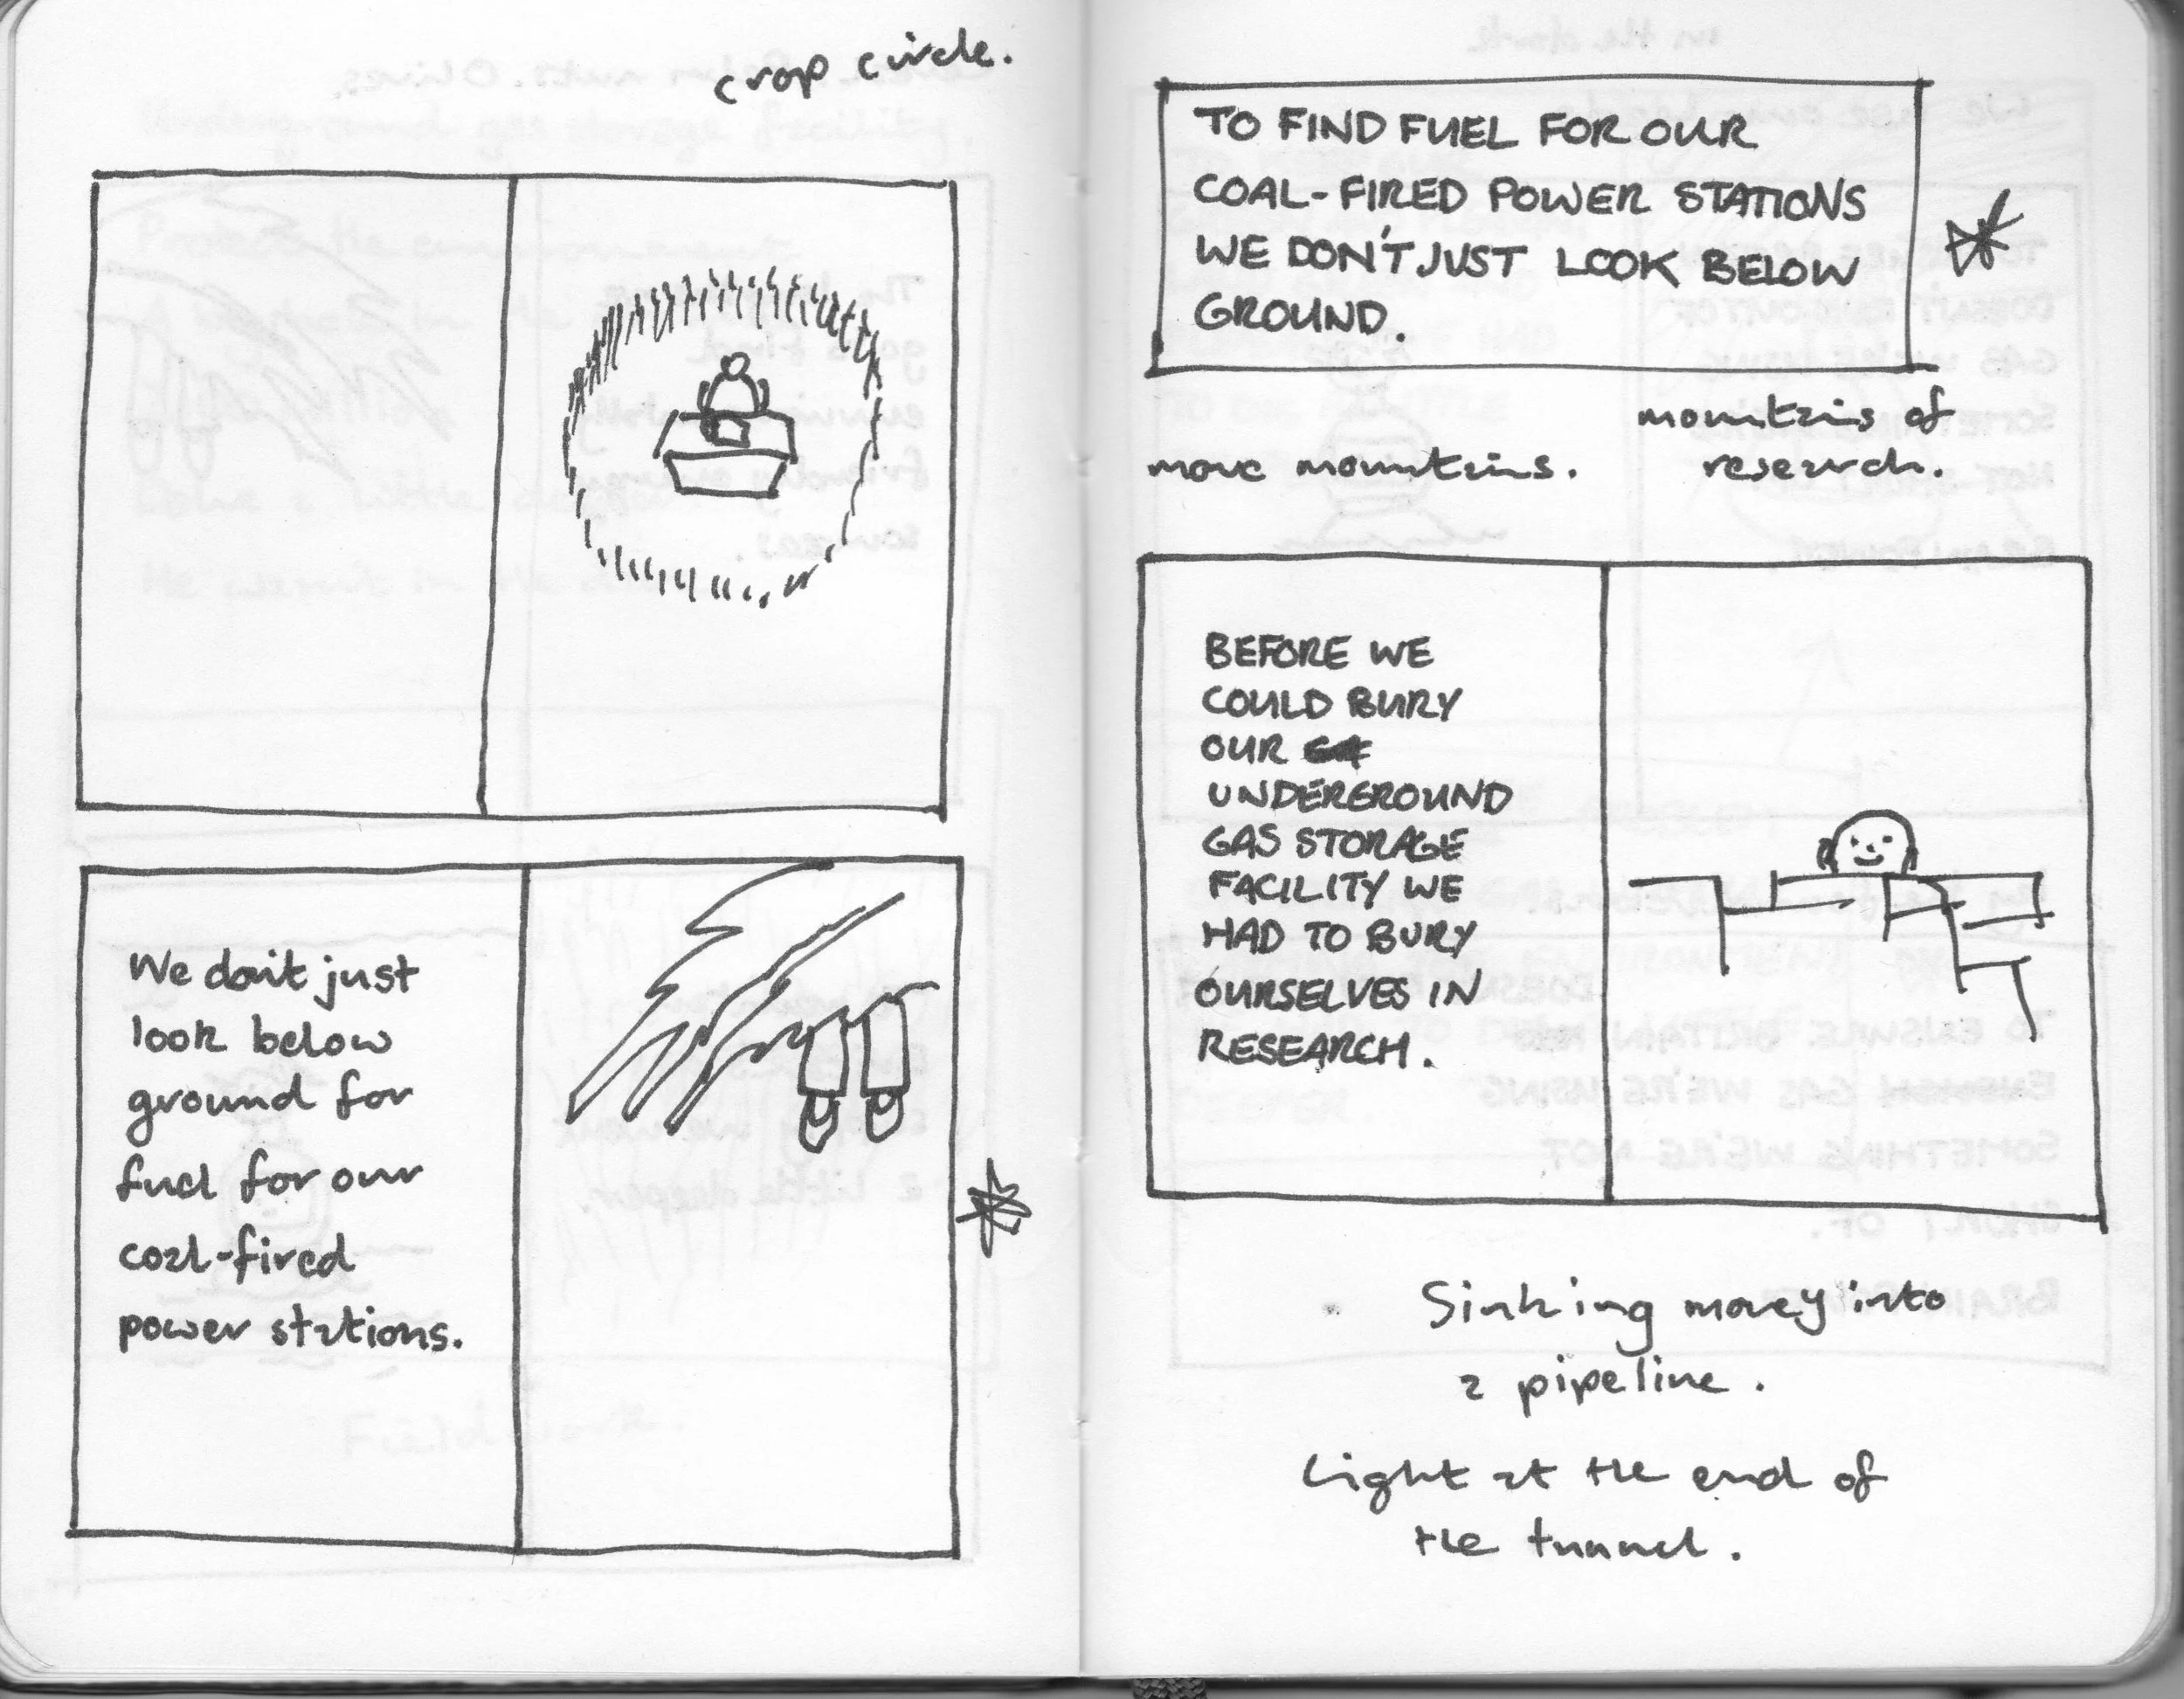 crop circle.
We don't just
look below
ground for
fuel for our
coal-fired
power stations.
TO FIND FUEL FOR OUR
COAL-FIRED POWER STATIONS
WE DON'T JUST LOOK BELOW
GROUND.
mountains of
move mountains. research.
BEFORE WE
COULD BURY
OUR
UNDERGROUND
GAS STORAGE
FACILITY WE
HAD TO BURY
OURSELVES IN
RESEARCH.
Sinking money into
a pipeline.
Light at the end of
the tunnel.